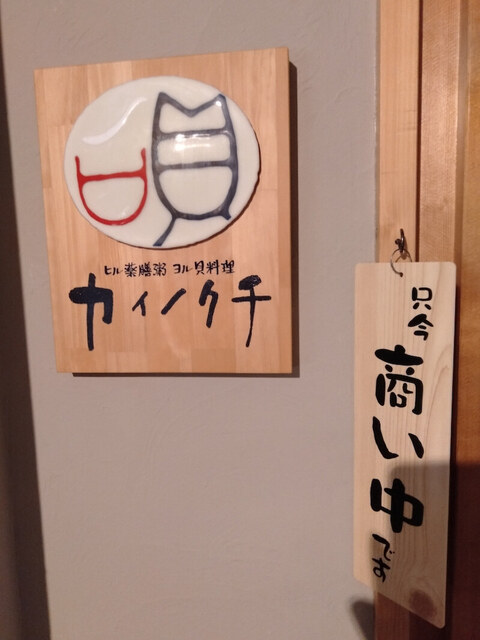 ヒル薬膳粥 ヨル貝料理
カイノクチ
只今
商い中
です